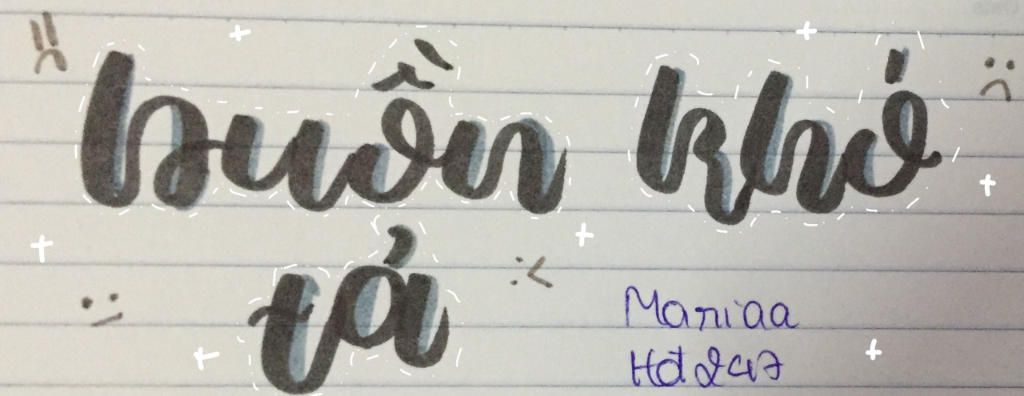 buồn khó
tả
Maniaa
Hđ247